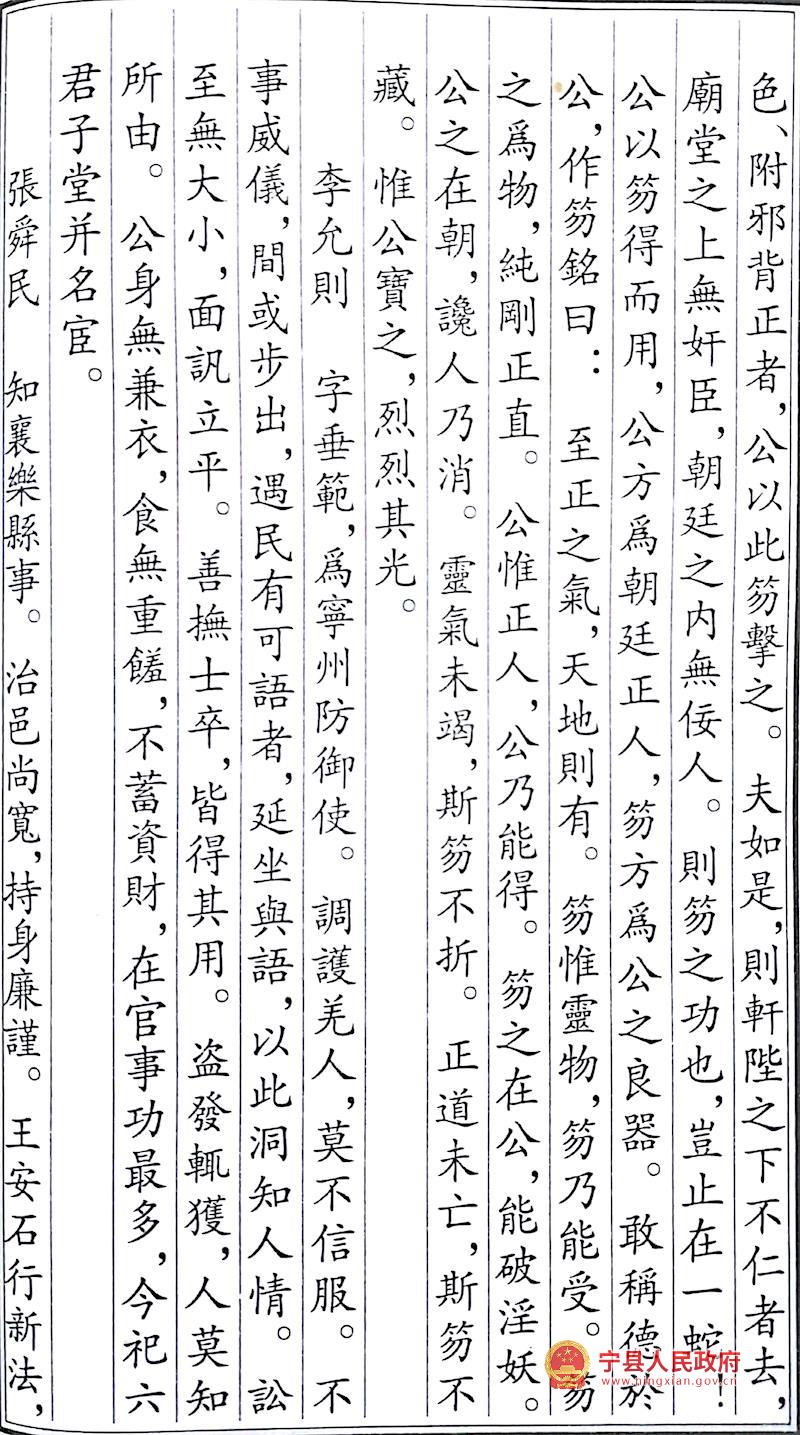 色、附邪背正者，公以此笏擊之。夫如是，則軒陛之下不仁者去，
廟堂之上無奸臣，朝廷之内無佞人。則笏之功也，豈止在一蛇！
公以笏得而用，公方爲朝廷正人，笏方爲公之良器。敢稱德於
公，作笏銘曰：至正之氣，天地則有。笏惟靈物，笏乃能受。笏
之爲物，純剛正直。公惟正人，公乃能得。笏之在公，能破淫妖。
公之在朝，讒人乃消。靈氣未竭，斯笏不折。正道未亡，斯笏不
藏。惟公寶之，烈烈其光。
李允則 字垂範，爲寧州防御使。調護羌人，莫不信服。不
事威儀，間或步出，遇民有可語者，延坐與語，以此洞知人情。訟
至無大小，面訊立平。善撫士卒，皆得其用。盗發輒獲，人莫知
所由。公身無兼衣，食無重饈，不蓄資財，在官事功最多，今祀六
君子堂并名宦。
張舜民 知襄樂縣事。治邑尚寬，持身廉謹。王安石行新法，
宁县人民政府
www.ningxian.gov.cn